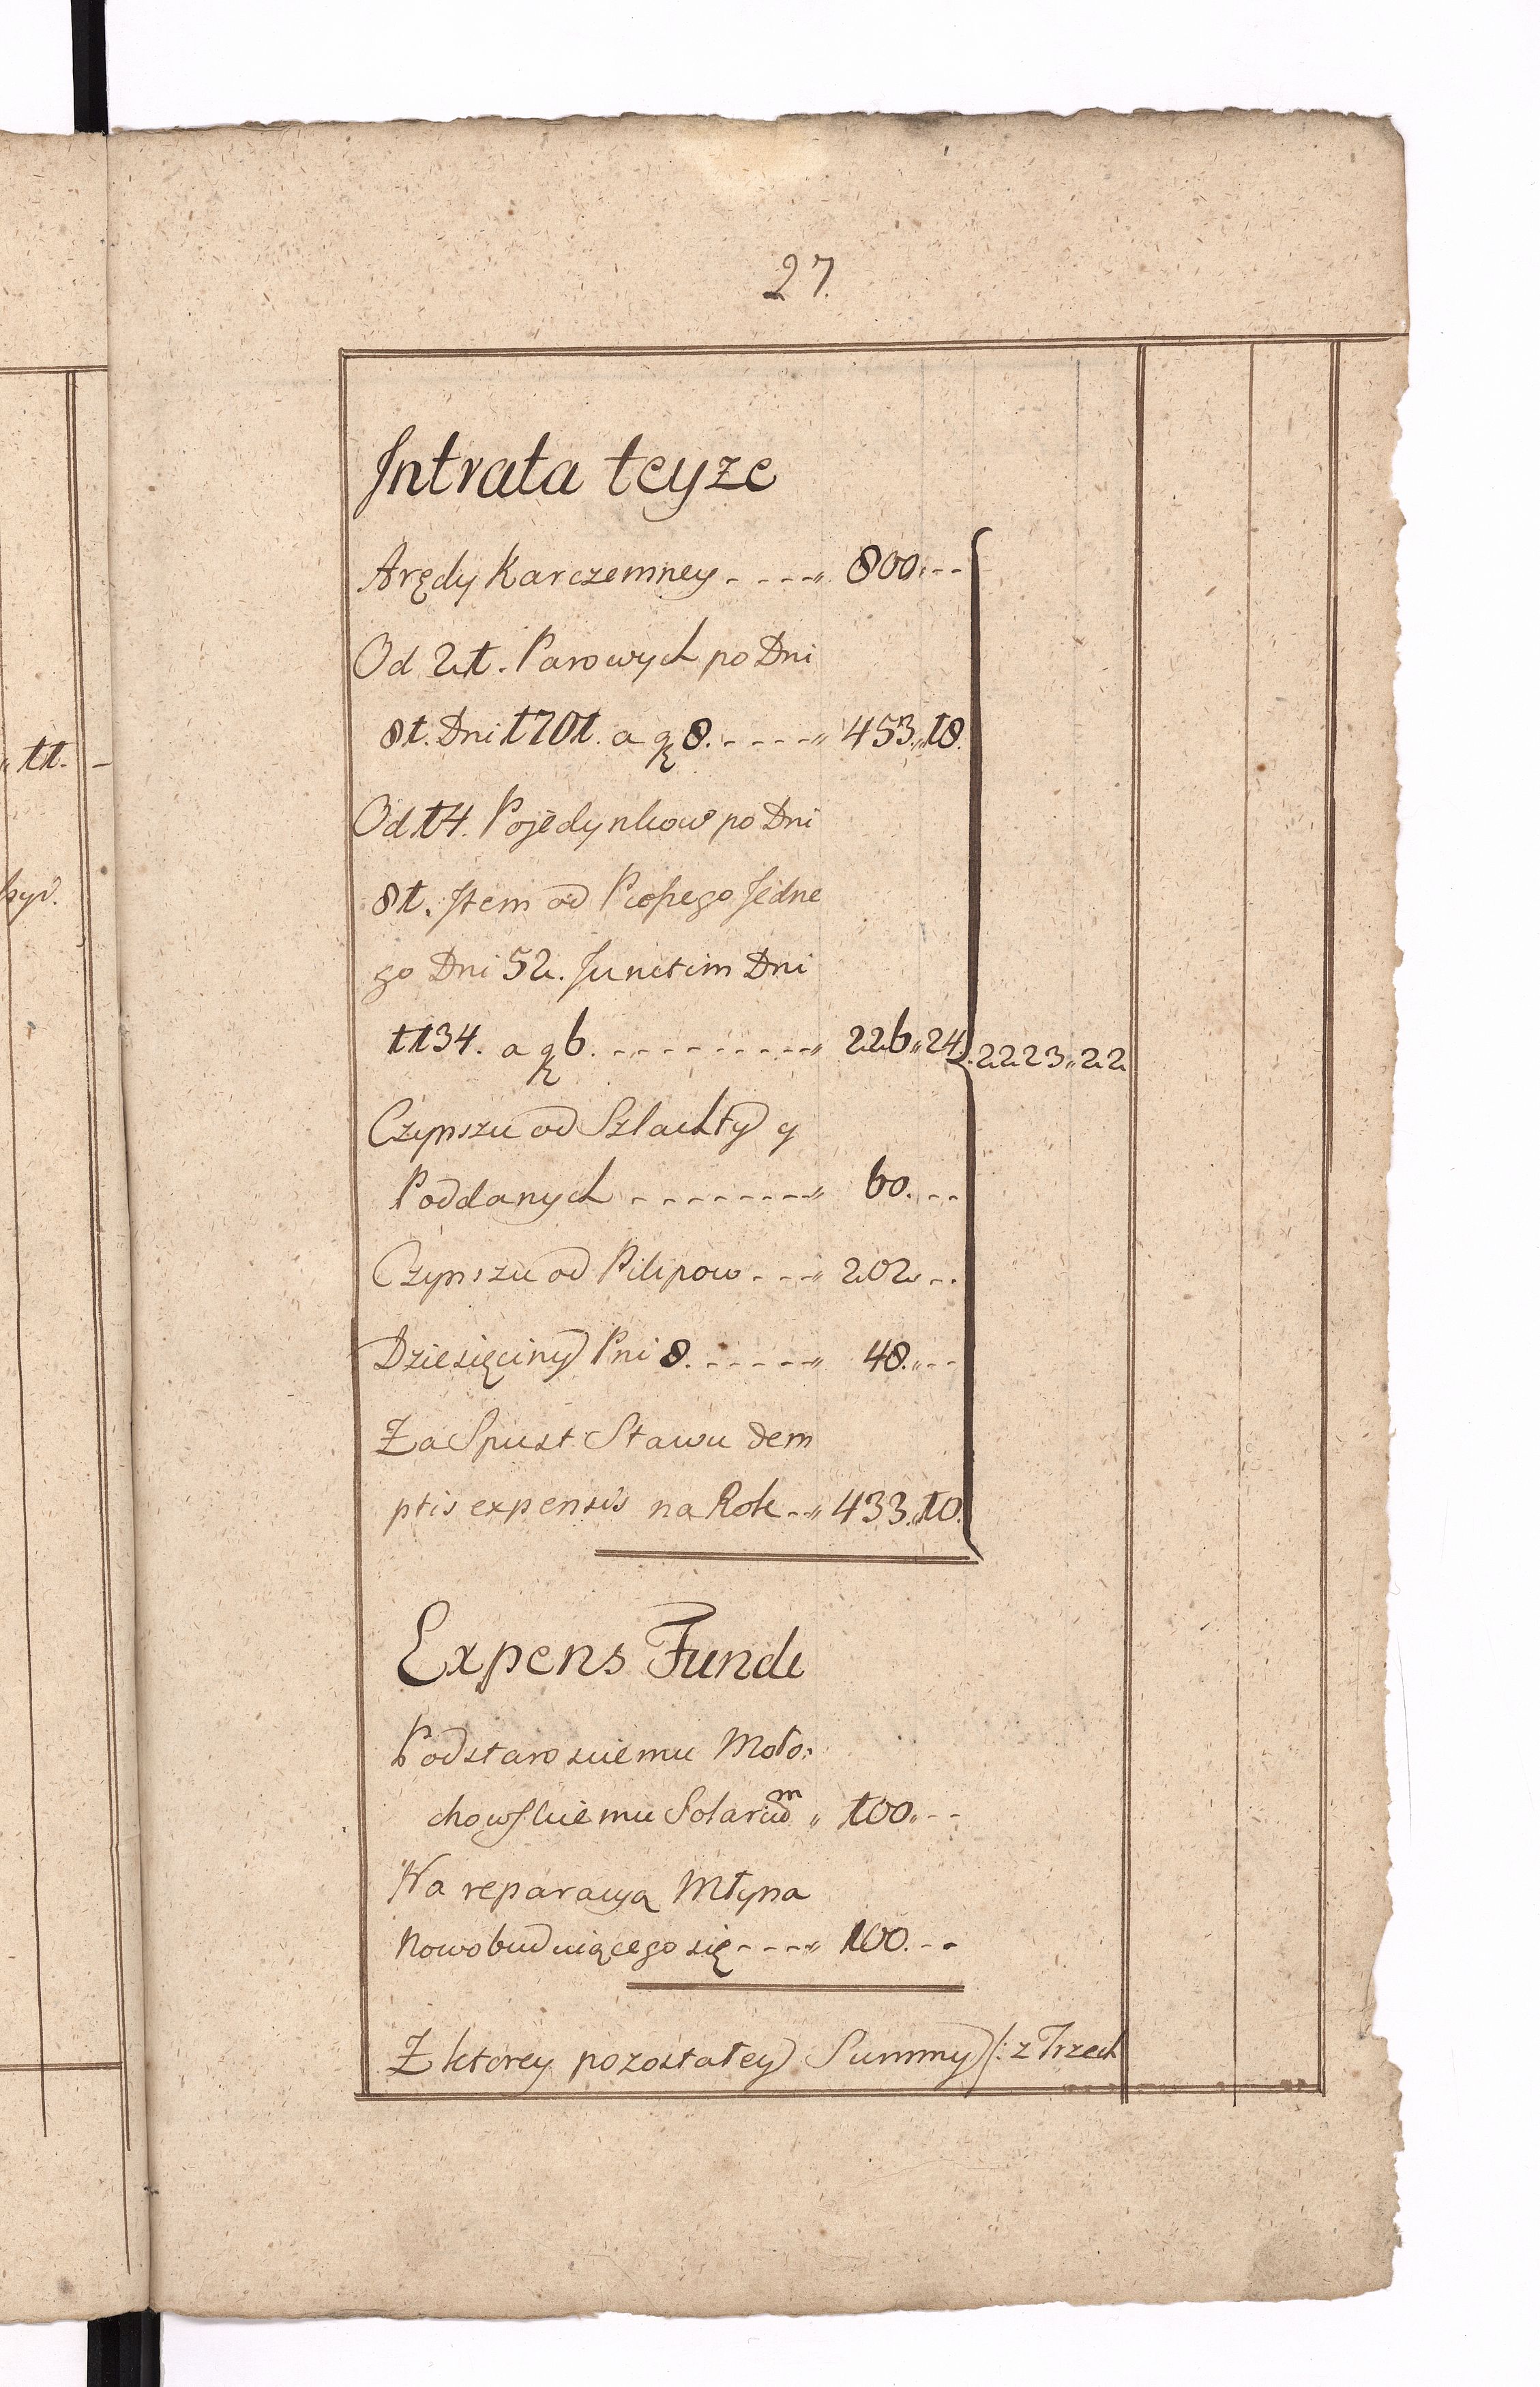 27.
Intrata teyze
Arędy Karczemney - - - -„ 800„ - -
Od 21. Parowych po Dni
81. Dni 1701. a gr 8. - - - -„ 453„18.
Od 14. Pojedynkow po Dni
81. Item od Pieszego Jedne
go Dni 52. Junctim Dni
1134. a gr 6. - - - - - - - - - -„ 226„24. 2223„22
Czynszu od Szlachty y
Poddanych - - - - - - - -„ 60. - -
Czynszu od Pilipow - - -„ 202„ - -
Dziesięciny Pni 8. - - - - -„ 48„ - -
Za Spust Stawu dem
ptis expensis na Rok - -„ 433„10.
Expens Fundi
Podstarosciemu Moło:
chowskiemu Solariũm „ 100„ - -
Na reparacyą Młyna
Nowobuduiącego się - - - -„ 100. - -
Z ktorey pozostałey Summy /: z Trzech
„11. -